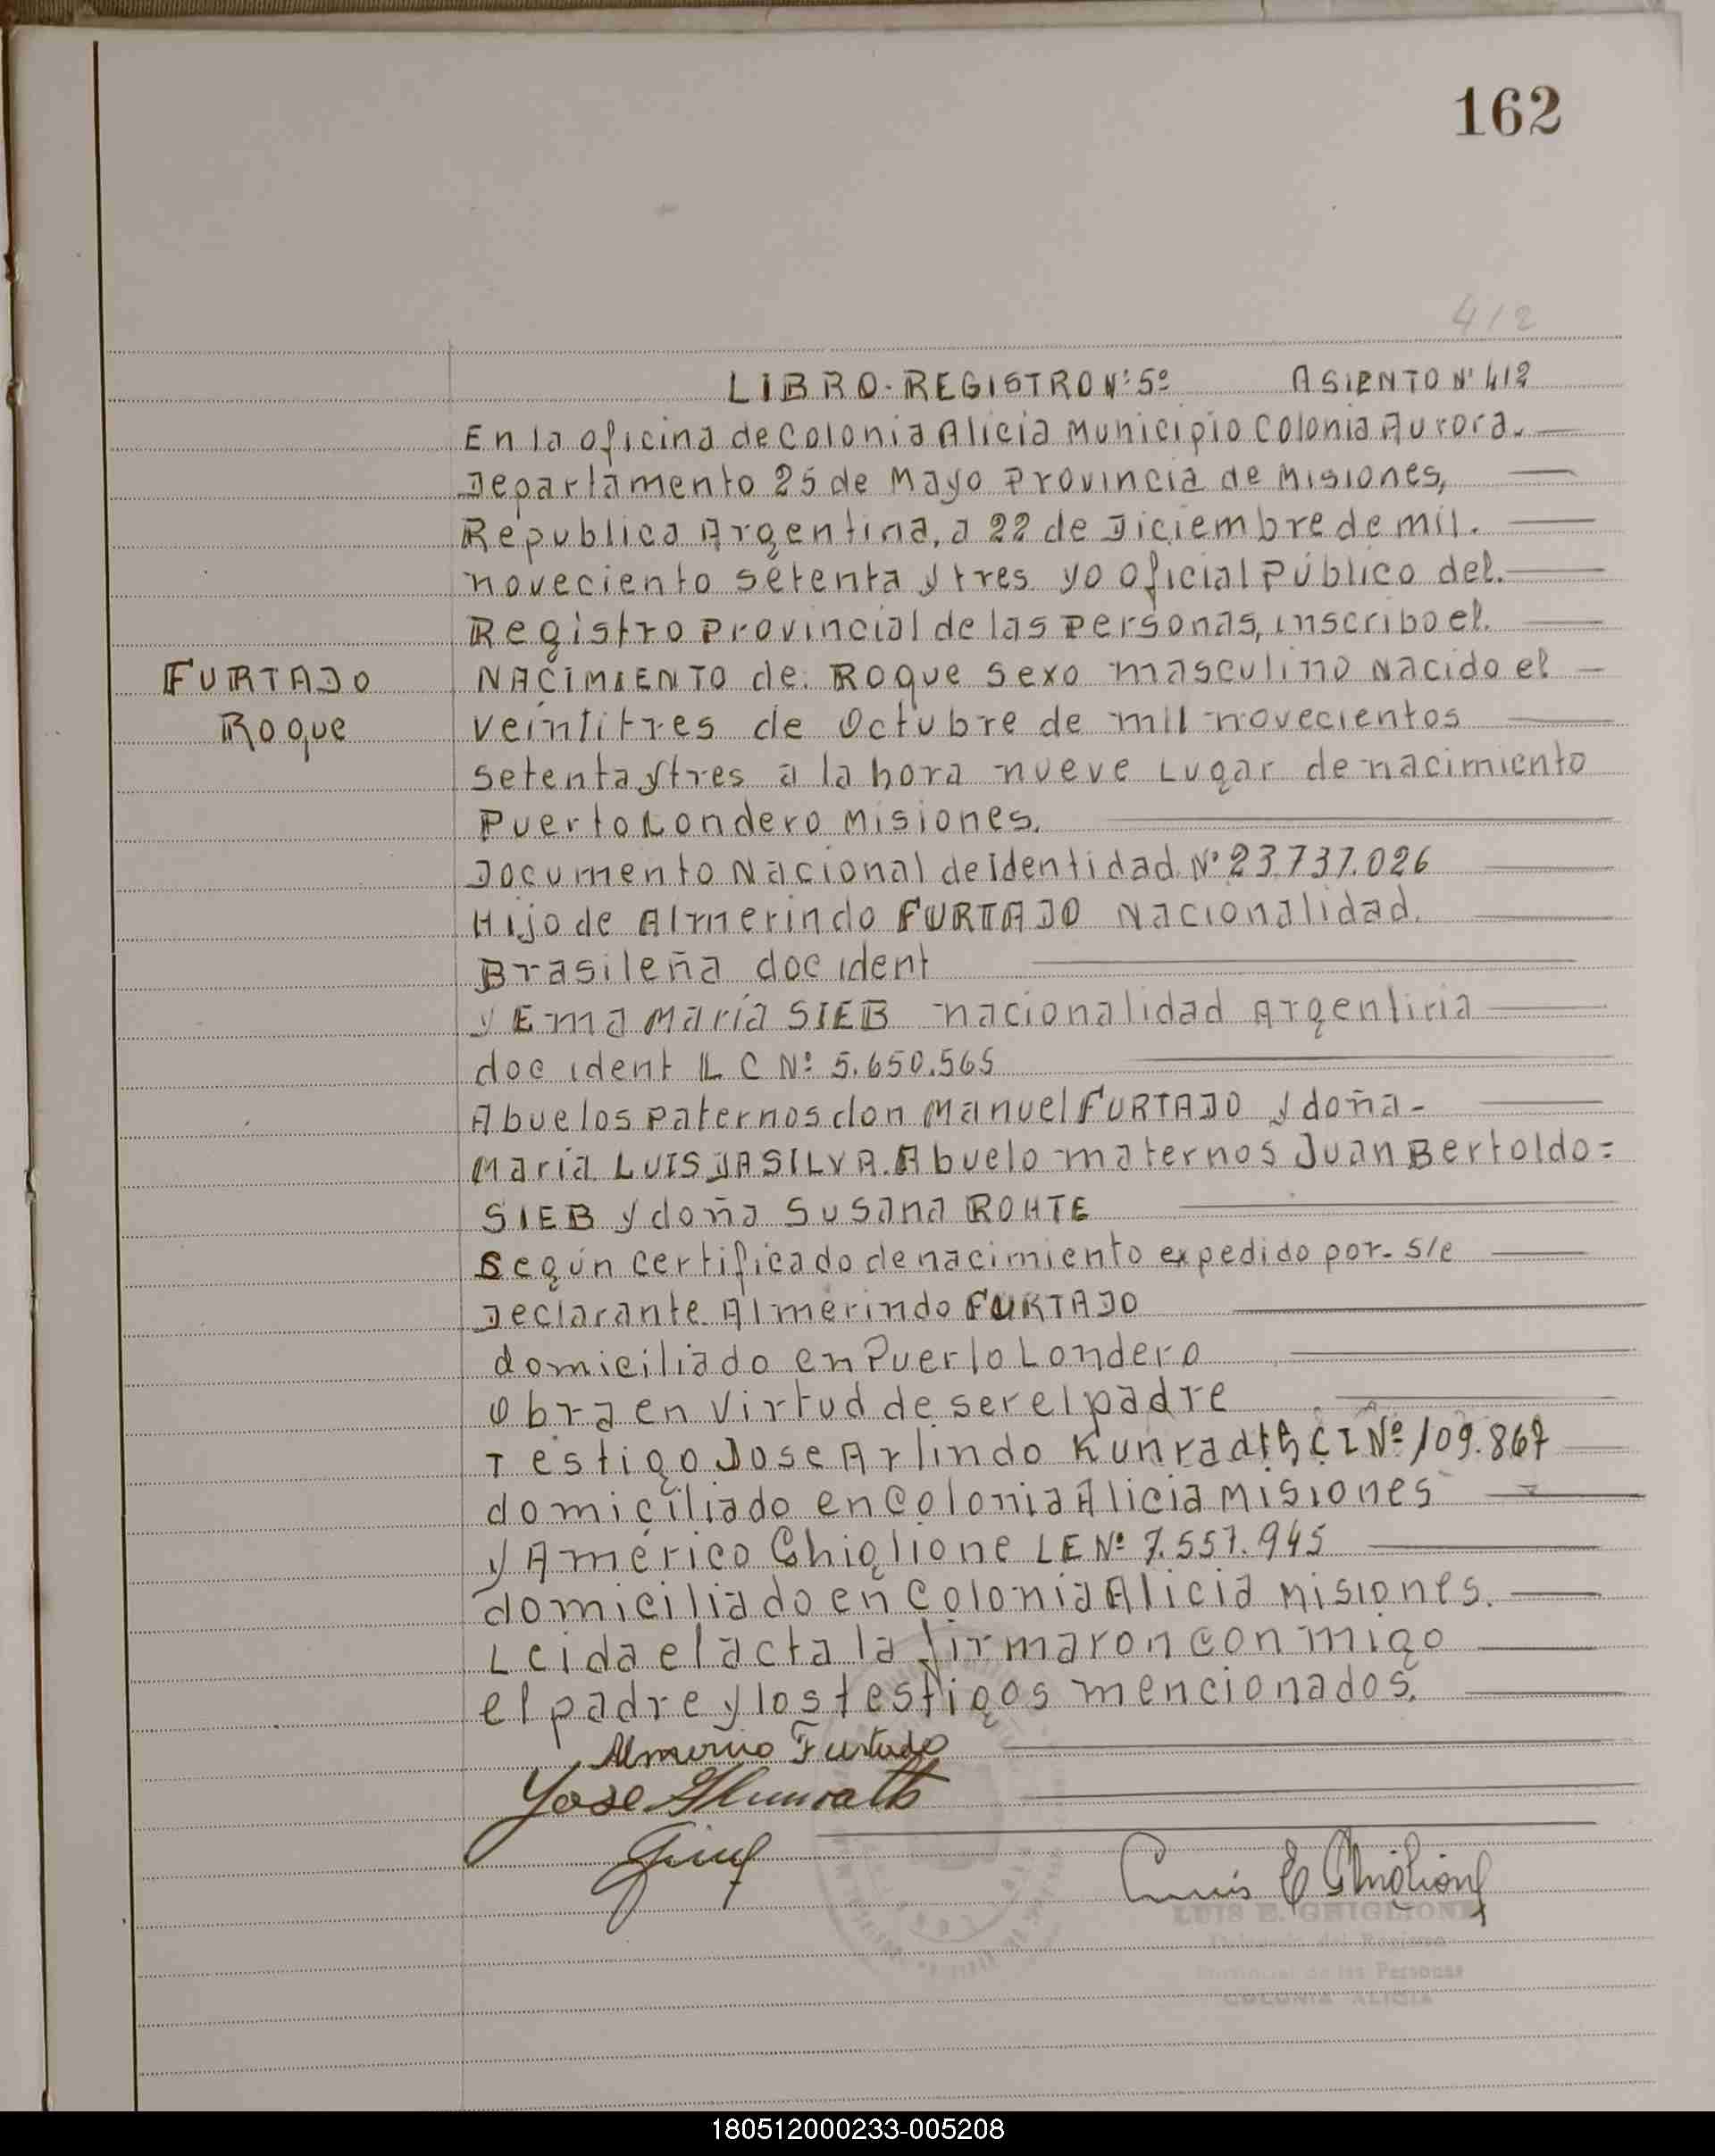 162
412
LIBRO-REGISTRO Nº 5º ASIENTO Nº 412
En la oficina de Colonia Alicia Municipio Colonia Aurora.
Departamento 25 de Mayo Provincia de Misiones,
Republica Argentina, a 22 de Diciembre de mil.
noveciento setenta y tres yo oficial Público del.
Registro provincial de las personas, inscribo el.
FURTADO NACIMIENTO de Roque sexo masculino nacido el
Roque veintitres de Octubre de mil novecientos
setenta y tres a la hora nueve Lugar de nacimiento
Puerto Londero Misiones.
Documento Nacional de identidad Nº 23.737.026
Hijo de Almerindo FURTADO Nacionalidad.
Brasileña doc ident
y Ema María SIEB nacionalidad Argentina
doc ident L C Nº 5.650.565
Abuelos paternos don Manuel FURTADO y doña-
María LUIS DA SILVA. Abuelo maternos Juan Bertoldo=
SIEB y doña Susana ROHTE
Según certificado de nacimiento expedido por. s/e
Declarante Almerindo FURTADO
domiciliado en Puerto Londero
Obra en virtud de ser el padre
Testigo Jose Arlindo C I Nº 109.867
domiciliado en Colonia Alicia Misiones
y Américo Ghiglione L E Nº 7.557.945
domiciliado en Colonia Alicia Misiones.
Leida el acta la firmaron conmigo
el padre y los testigos mencionados.
Furtado
Yose
Luis E Ghiglione
LUIS E. GHIGLIONE
Delegado del Registro
Provincial de las Personas
COLONIA ALICIA
180512000233-005208